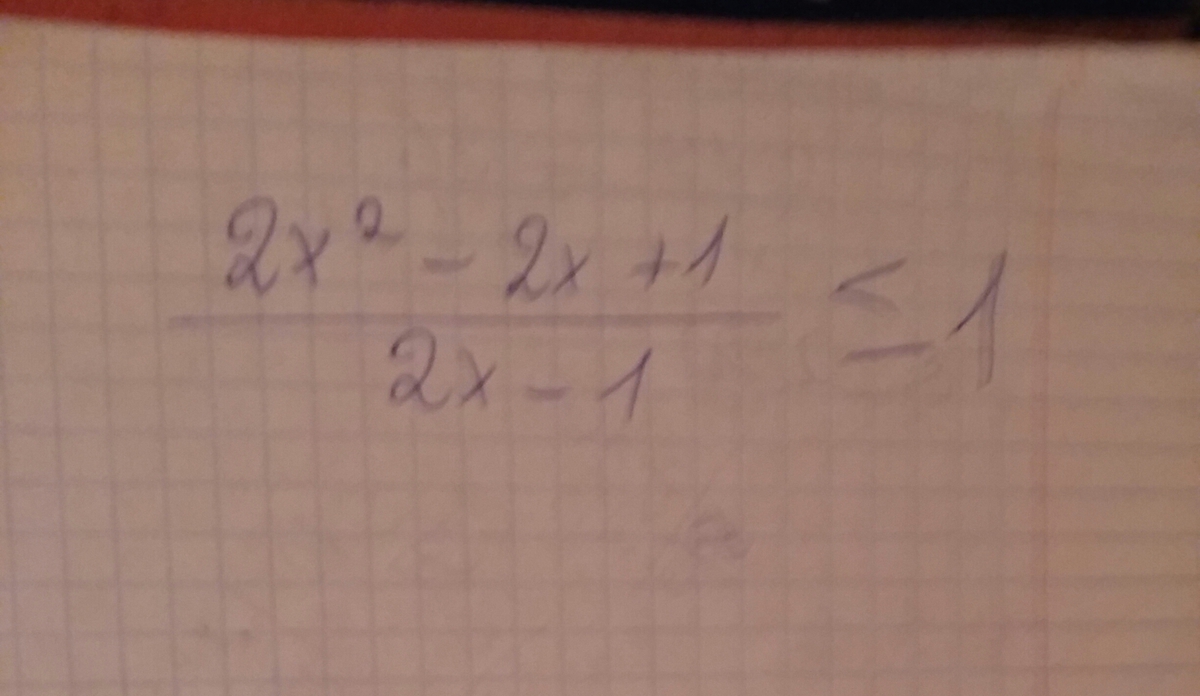 2x² - 2x + 1
2x - 1
≤ 1